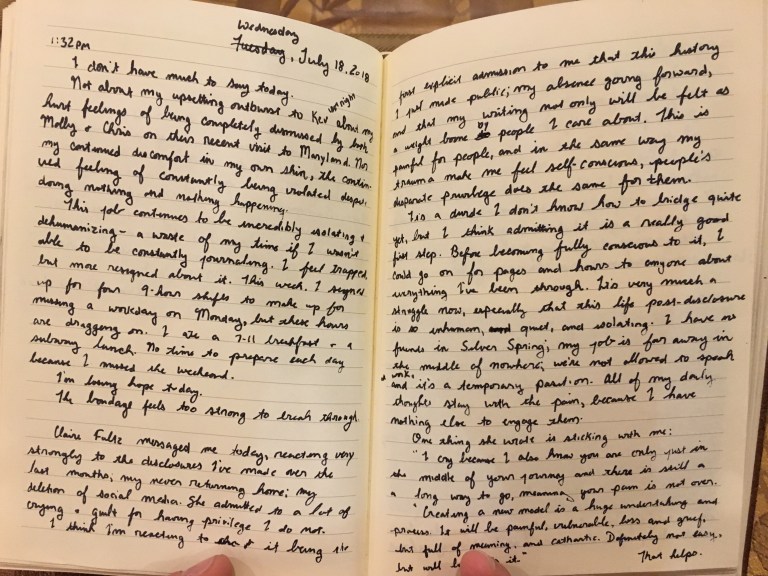 Wednesday
1:32 PM Tuesday, July 18, 2018
I don't have much to say today.
Not about my upsetting outburst to Kev last night about my
hurt feelings of being completely dismissed by both
Molly + Chris on their recent visit to Maryland. Nor
my continued discomfort in my own skin, the contin-
ued feeling of constantly being violated despite
doing nothing and nothing happening.
This job continues to be incredibly isolating +
dehumanizing - a waste of my time if I wasn't
able to be constantly journaling. I feel trapped,
but more resigned about it. This week, I signed
up for four 9-hour shifts to make up for
missing a workday on Monday, but these hours
are dragging on. I ate a 7-11 breakfast + a
subway lunch. No time to prepare each day
because I missed the weekend.
I'm losing hope today.
The bondage feels too strong to break through.
Claire Faltz messaged me today, reacting very
strongly to the disclosures I've made over the
last months; my never returning home; my
deletion of social media. She admitted to a lot of
crying + guilt for having privilege I do not.
I think I'm reacting to it being the
first explicit admission to me that this history
I just made public; my absence going forward,
and that my writing not only will be felt as
a weight borne by people I care about. This is
painful for people, and in the same way my
trauma make me feel self-conscious, people's
disparate privilege does the same for them.
It is a divide I don't know how to bridge quite
yet, but I think admitting it is a really good
first step. Before becoming fully conscious to it, I
could go on for pages and hours to anyone about
everything I've been through. It is very much a
struggle now, especially that this life post-disclosure
is so inhuman, quiet, and isolating. I have no
friends in Silver Spring; my job is far away in
the middle of nowhere; we're not allowed to speak
@ work, and it's a temporary position. All of my daily
thoughts stay with the pain, because I have
nothing else to engage them.
One thing she wrote is sticking with me:
"I cry because I also know you are only just in
the middle of your journey and there is still a
a long way to go, meaning your pain is not over.
"Creating a new model is a huge undertaking and
process. It will be painful, vulnerable, loss and grief,
but full of meaning, and cathartic. Definitely not easy,
but will it."
That helps.